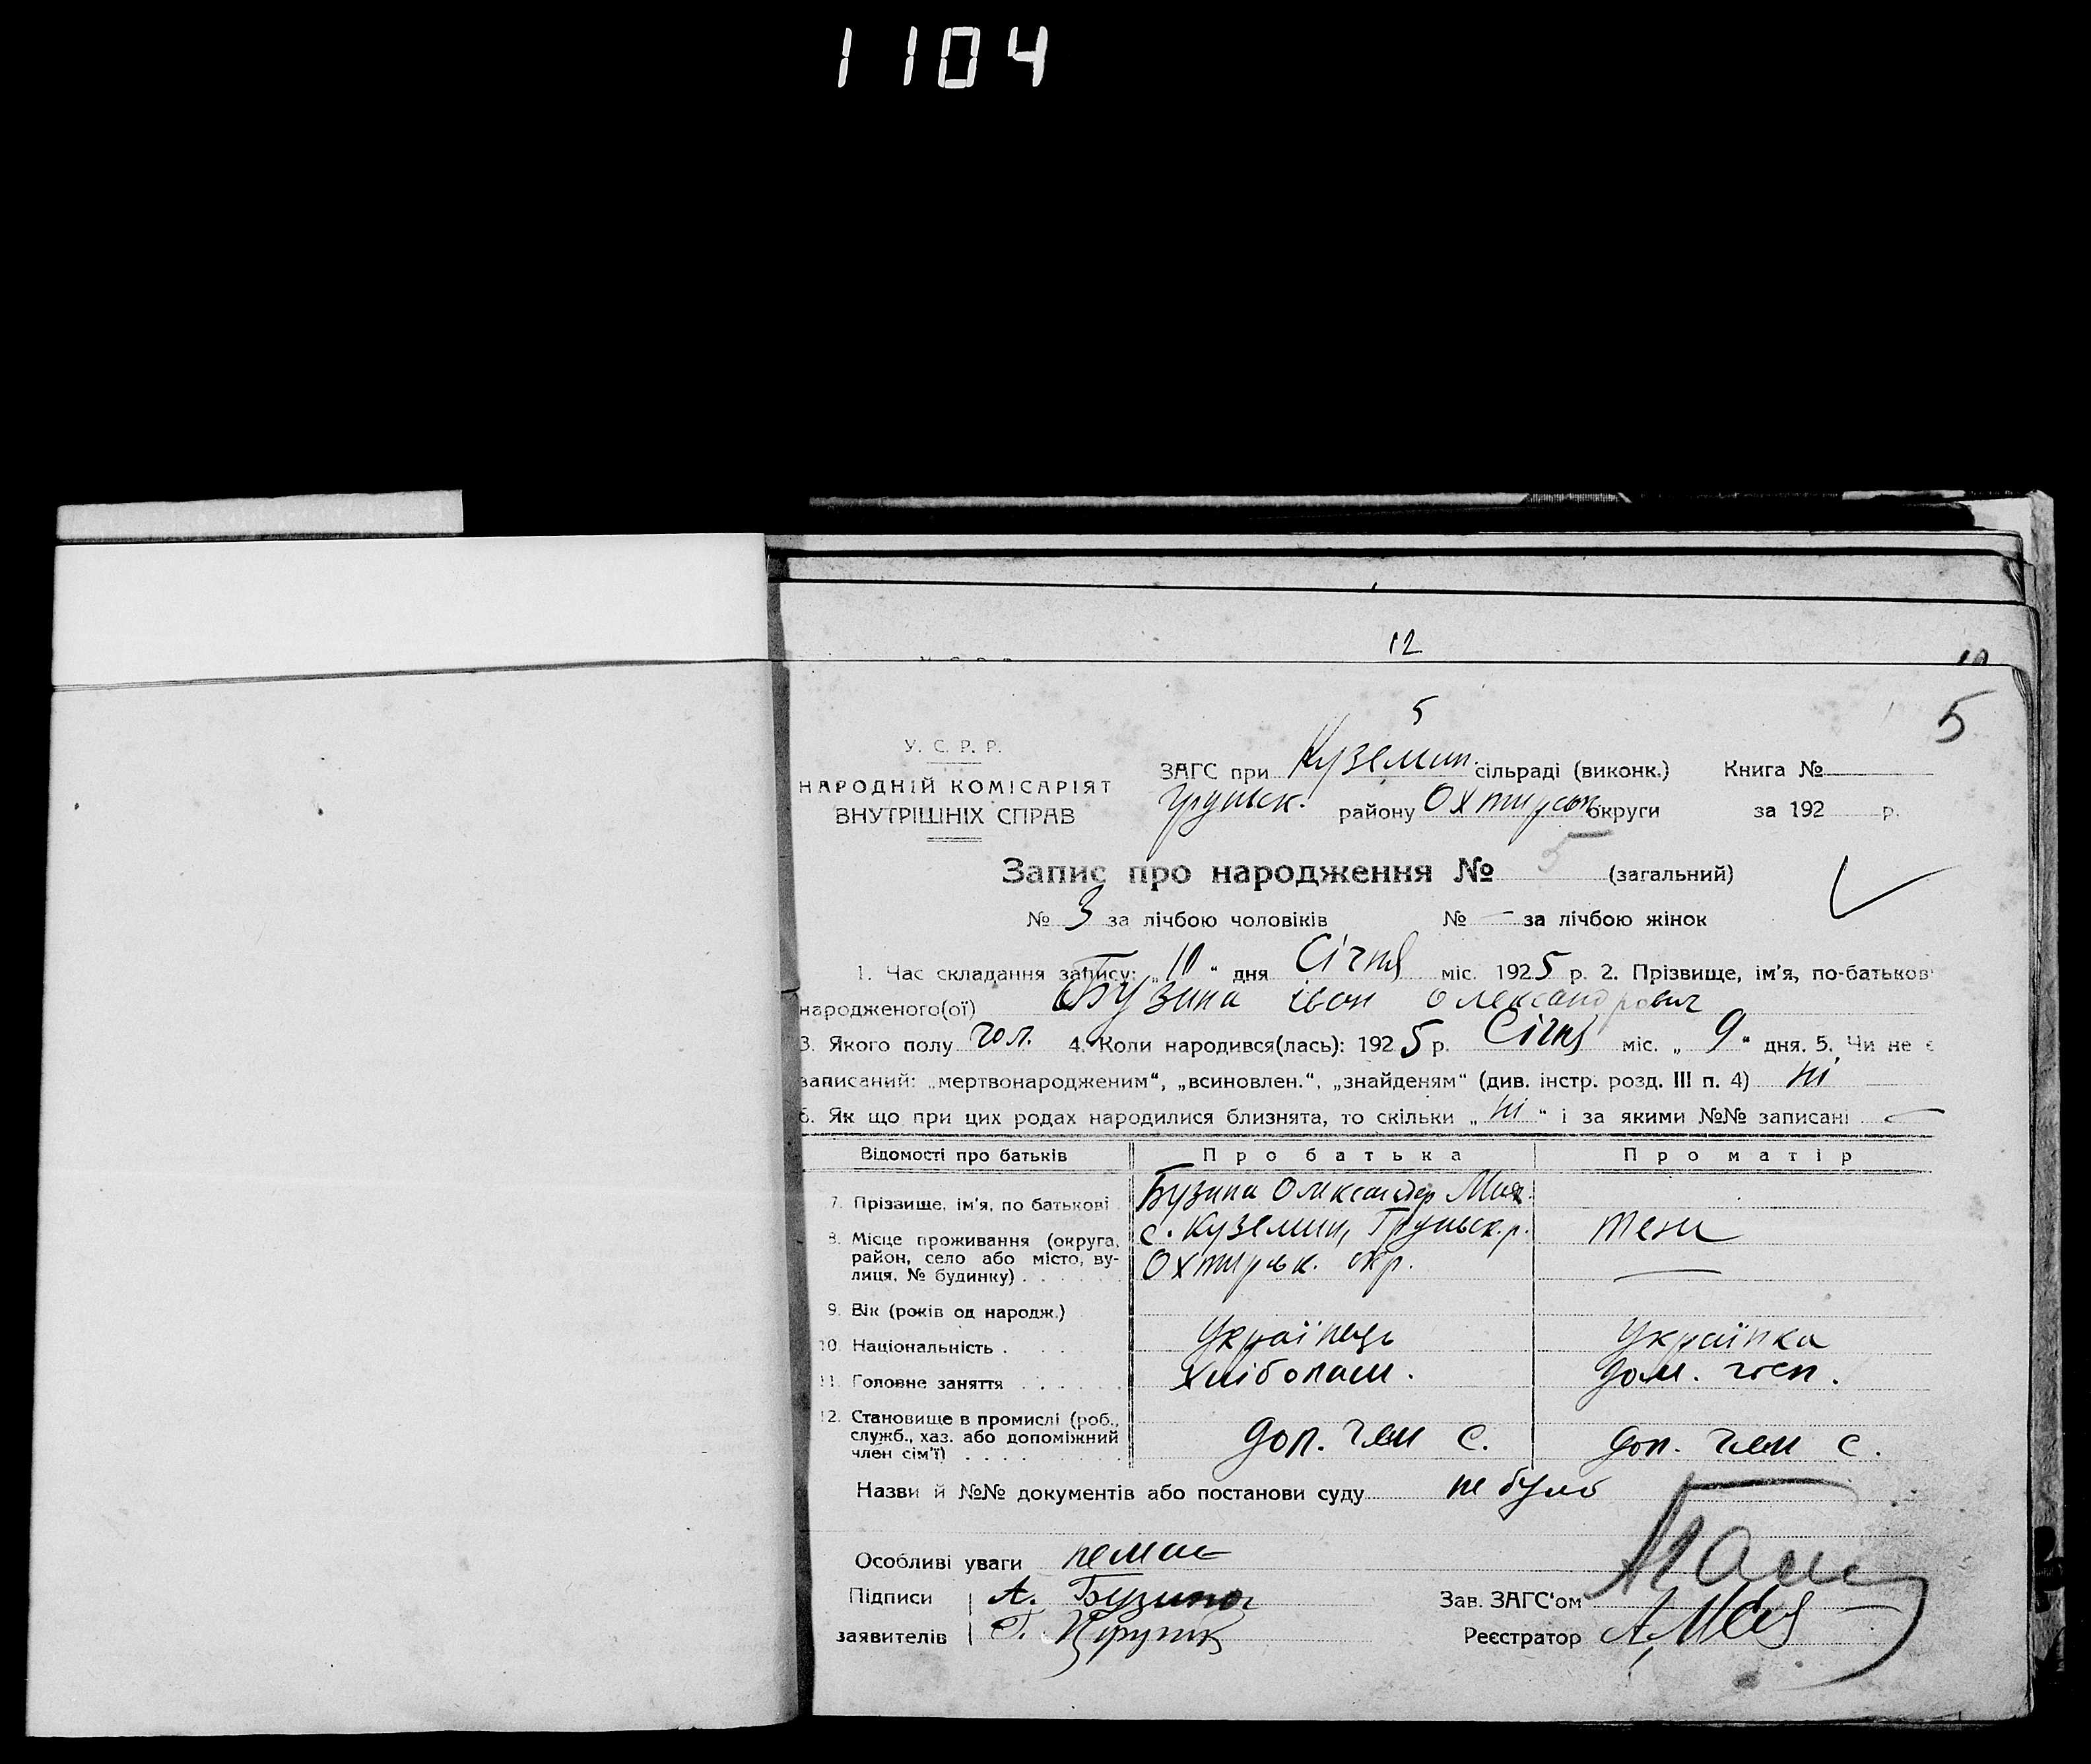 1104
12
10
5
5
У. С. Р. Р.
НАРОДНІЙ КОМІСАРІЯТ
ВНУТРІШНІХ СПРАВ
ЗАГС при Куземин. сільраді (виконк.) Книга №
Груньск. району Охтирськ. округи за 192 р.
Запис про народження № 5 (загальний)
№ 3 за лічбою чоловіків № — за лічбою жінок
1. Час складання запису: „10“ дня Січня міс. 1925 р. 2. Прізвище, ім'я, по-батьков
народженого(ої) Бузина Іван Олександрович
3. Якого полу чол. 4. Коли народився(лась): 1925 р. Січня міс. „9“ дня. 5. Чи не є
записаний: „мертвонародженим“, „всиновлен.“, „знайденям“ (див. інстр. розд. III п. 4) ні
6. Як що при цих родах народилися близнята, то скільки „ні“ і за якими №№ записані —
Відомості про батьків Про батька Про матір
7. Прізвище, ім'я, по батькові Бузина Олександер
8. Місце проживання (округа, район, село або місто, вулиця, № будинку) с. Куземин, Груньск. р. Охтирськ. окр.
9. Вік (років од народж.)
10. Національність Українець Українка
11. Головне заняття Хліборат. дом. госп.
12. Становище в промислі (роб., служб., хаз. або допоміжний член сім'ї) доп. член с. доп. член с.
Назви й №№ документів або постанови суду не було
Особливі уваги немає
Підписи А. Бузина Зав. ЗАГС'ом
заявителів Г. Реєстратор